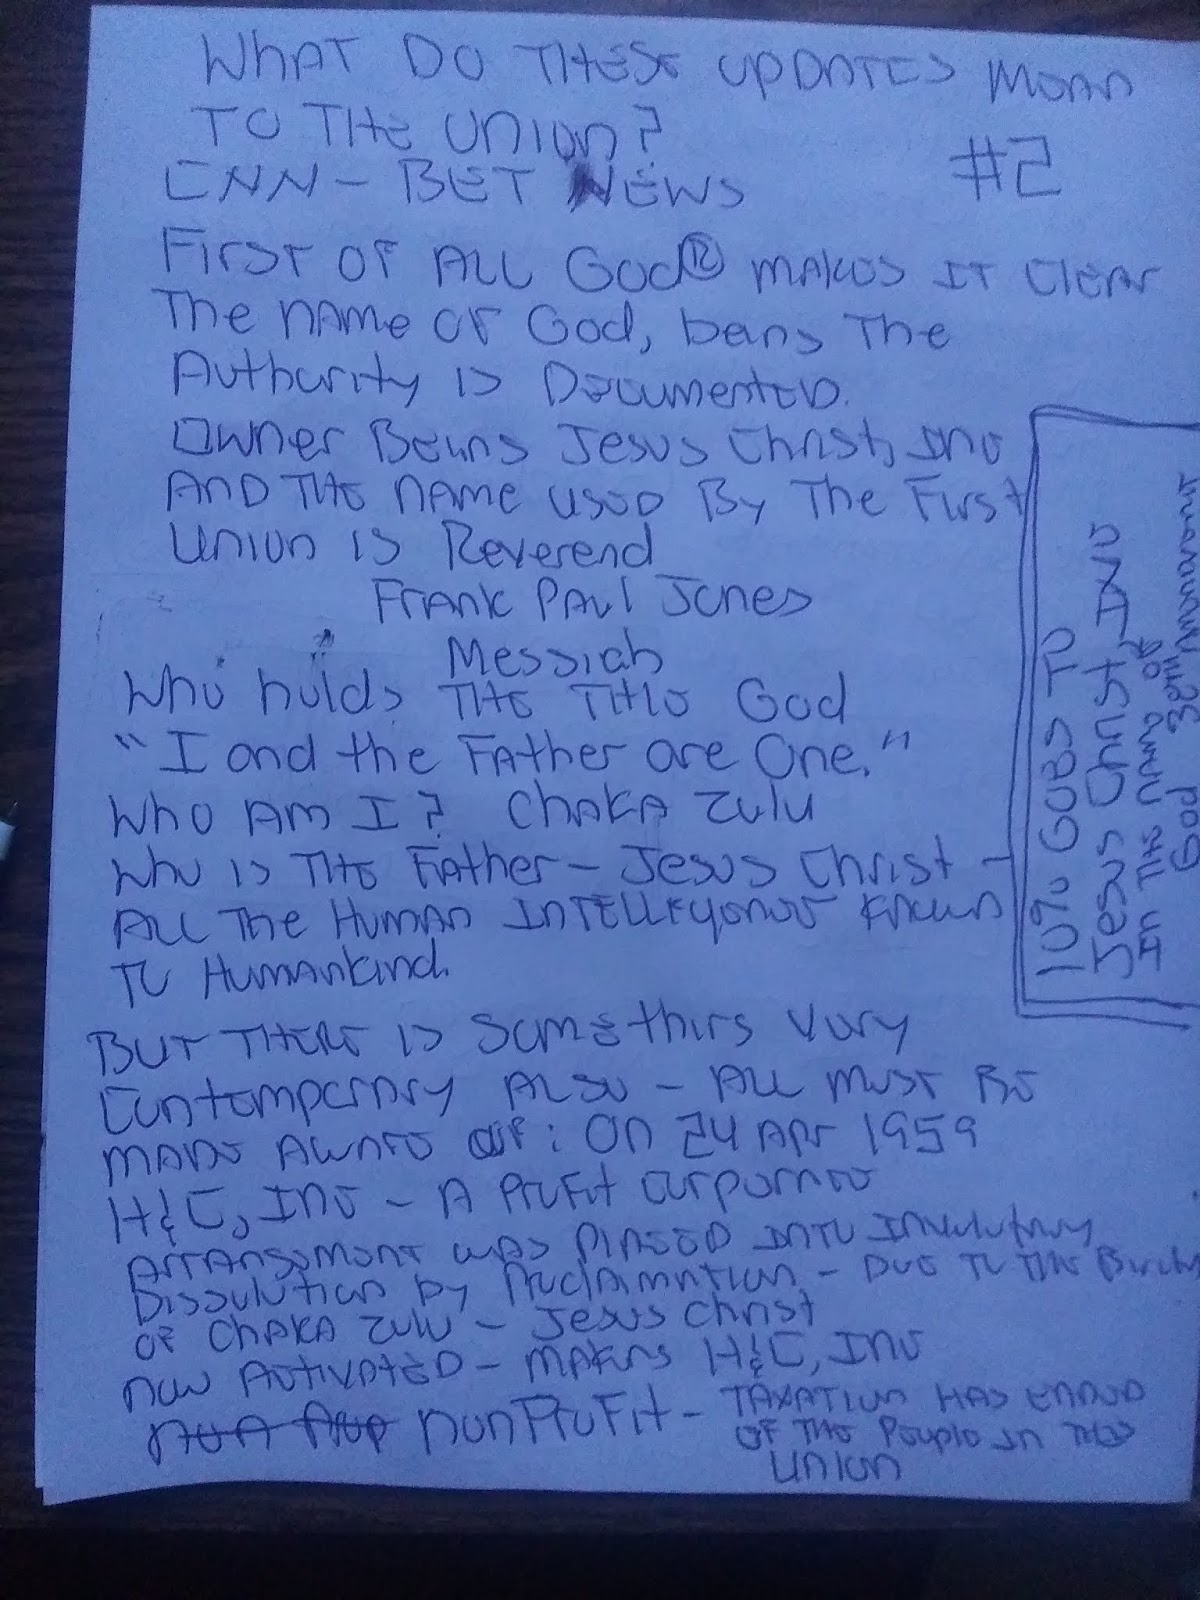 WHAT DO THESE UPDATES MEAN
TO THE UNION?
#2
CNN - BET NEWS
FIRST OF ALL GOD® MAKES IT CLEAR
The NAME OF God, being The
Authority is Documented.
Owner Being Jesus Christ, INC
AND THE NAME USED By The First
Union is Reverend
FRANK PAUL JONES
Messiah
Who holds THE TITLE God
"I and the Father are One."
Who Am I? CHAKA Zulu
Who is THE Father - Jesus Christ -
ALL The Human INTELLIGENCE KNOWN
To Humankind.
BUT THERE is Something Very
Contemporary ALSO - ALL MUST BE
MADE AWARE OF: ON 24 APR 1959
H&C, INC - A Profit Corporate
ARRANGEMENT WAS PLACED INTO Involuntary
Dissolution by Proclamation - DUE TO THE
OF CHAKA Zulu - Jesus Christ
now ACTIVATED - MAKING H&C, INC
nonProfit - TAXATION HAS ENDED
OF THE People IN THIS
Union
10% GOES TO
Jesus Christ, INC
IN THE NAME OF
God